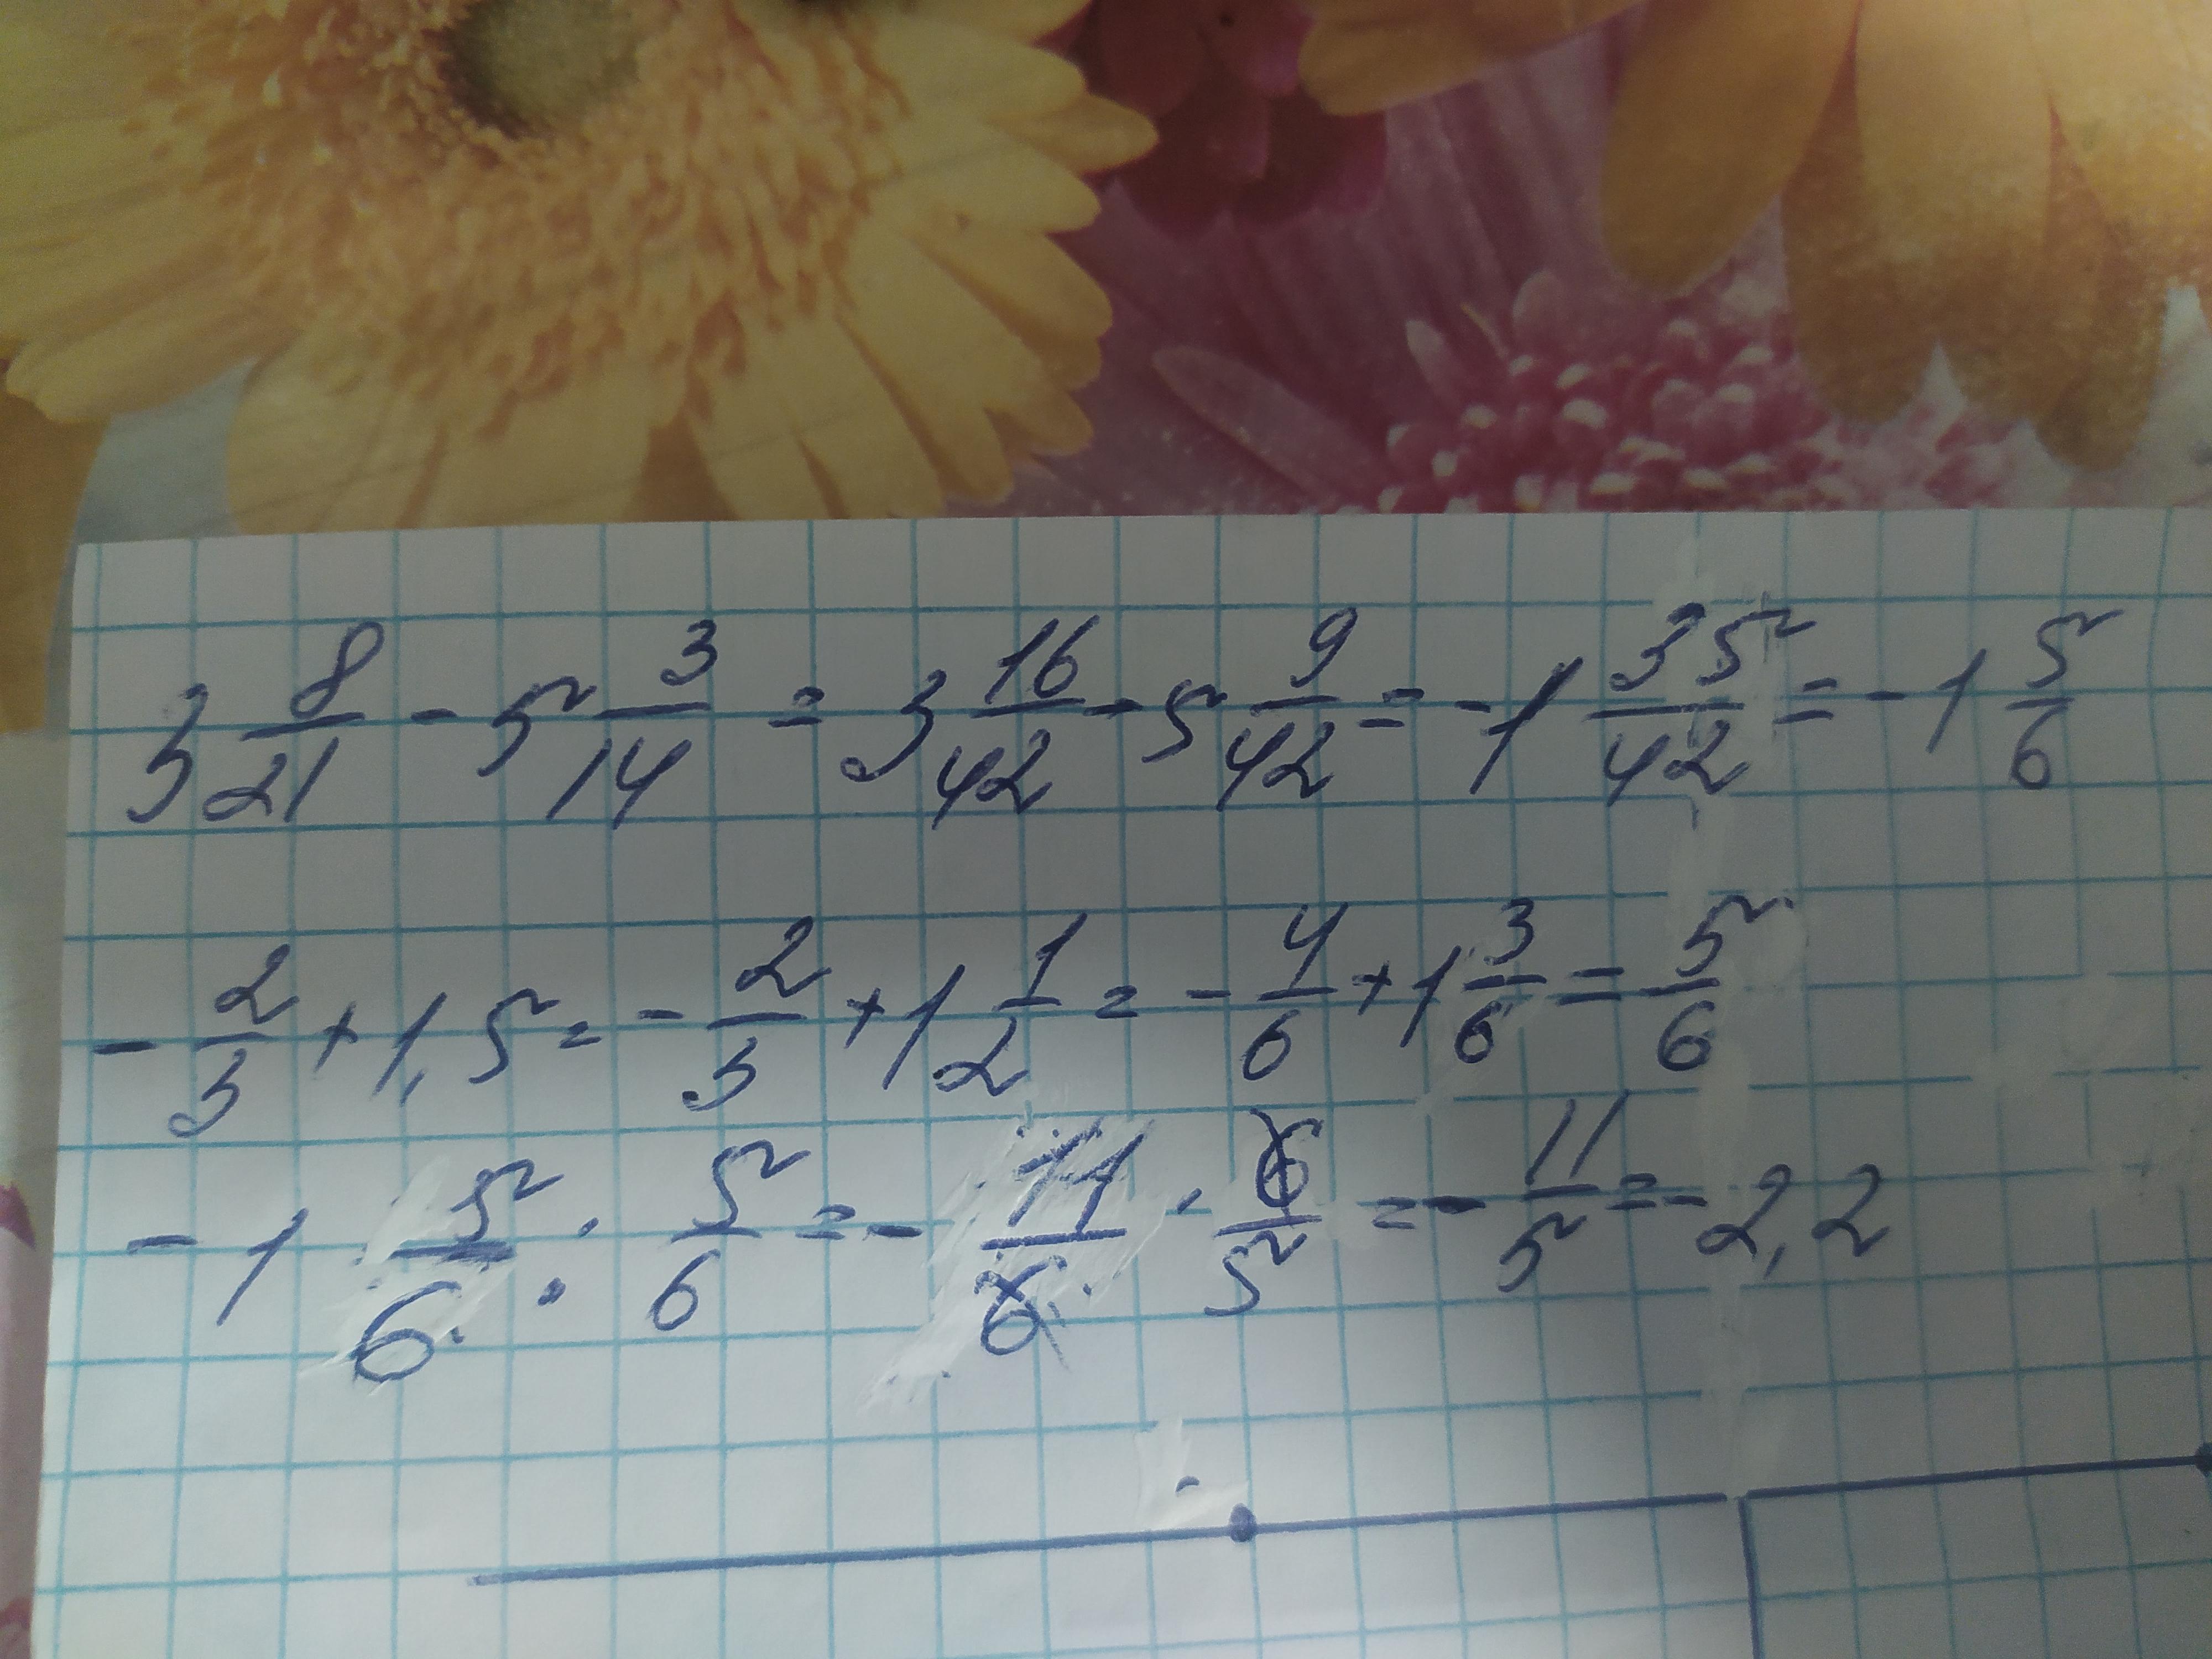 3 8/21 - 5 3/14 = 3 16/42 - 5 9/42 = -1 35/42 = -1 5/6
- 2/3 + 1,5 = - 2/3 + 1 1/2 = - 4/6 + 1 3/6 = 5/6
- 1 5/6 : 5/6 = - 11/6 · 6/5 = - 11/5 = - 2,2